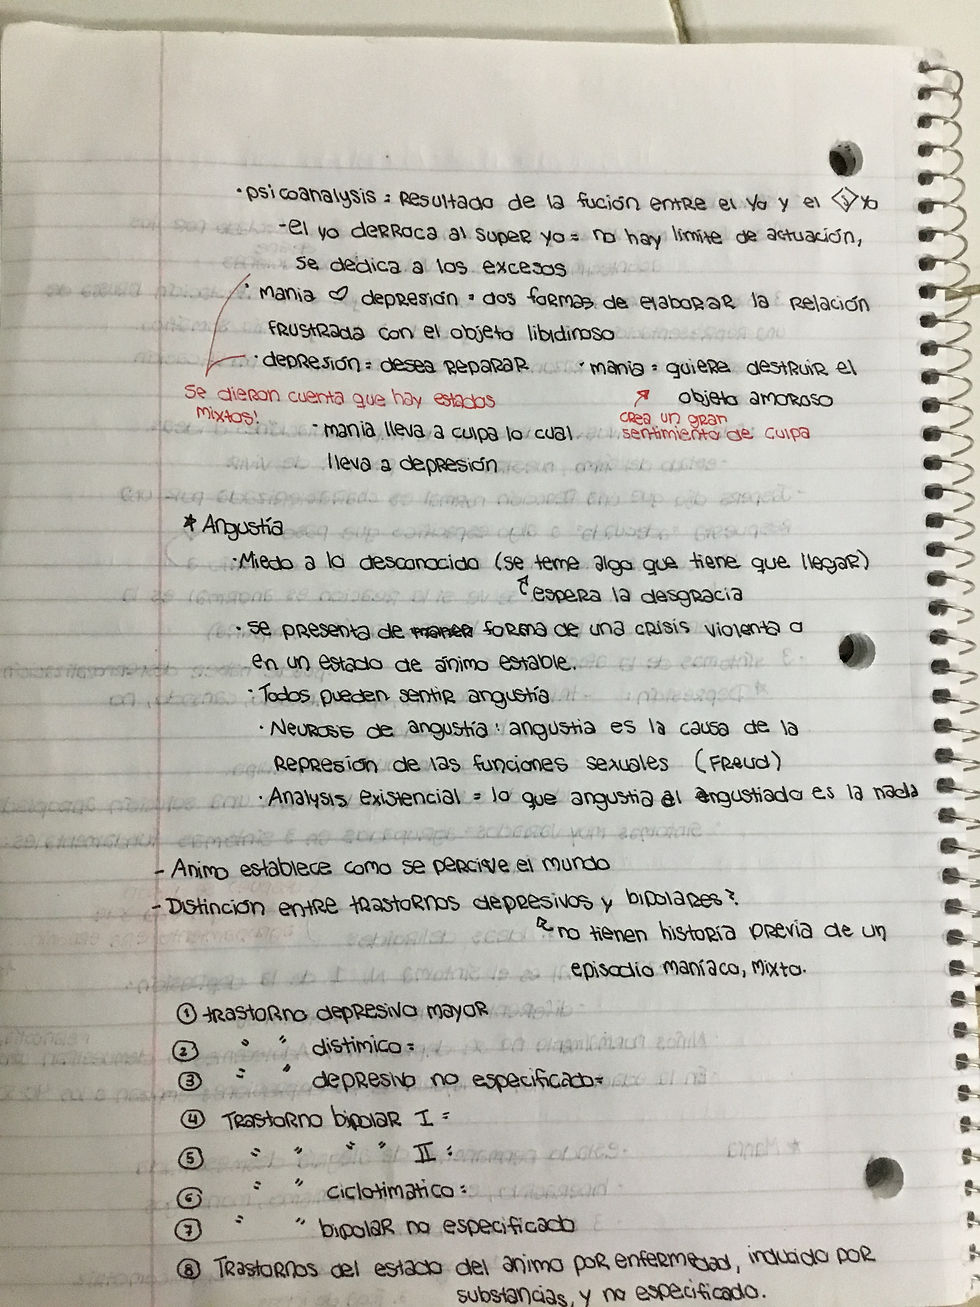 · psicoanalysis = Resultado de la fución entre el yo y el yo
- el yo derroca al super yo = no hay limite de actuación,
se dedica a los excesos
· mania ♡ depresión = dos formas de elaborar la relación
frustrada con el objeto libidinoso
· depresión = desea reparar · mania = quiere destruir el
objeto amoroso
se dieron cuenta que hay estados
mixtos!
crea un gran
sentimiento de culpa
· mania lleva a culpa lo cual
lleva a depresión
* Angustía
· Miedo a lo desconocido (se teme algo que tiene que llegar)
espera la desgracia
· se presenta de forma de una crisis violenta o
en un estado de ánimo estable.
· Todos pueden sentir angustía
· Neurosis de angustía : angustia es la causa de la
represión de las funciones sexuales (Freud)
· Analysis existencial = lo que angustia al angustiado es la nada
- Animo establece como se percive el mundo
- Distinción entre trastornos depresivos y bipolares?
no tienen historia previa de un
episodio maníaco, mixto.
① trastorno depresivo mayor
② " " distimico =
③ " " depresivo no especificado=
④ Trastorno bipolar I =
⑤ " " " " II :
⑥ " " ciclotimatico :
⑦ " " bipolar no especificado
⑧ Trastornos del estado del animo por enfermedad, inducido por
substancias, y no especificado.